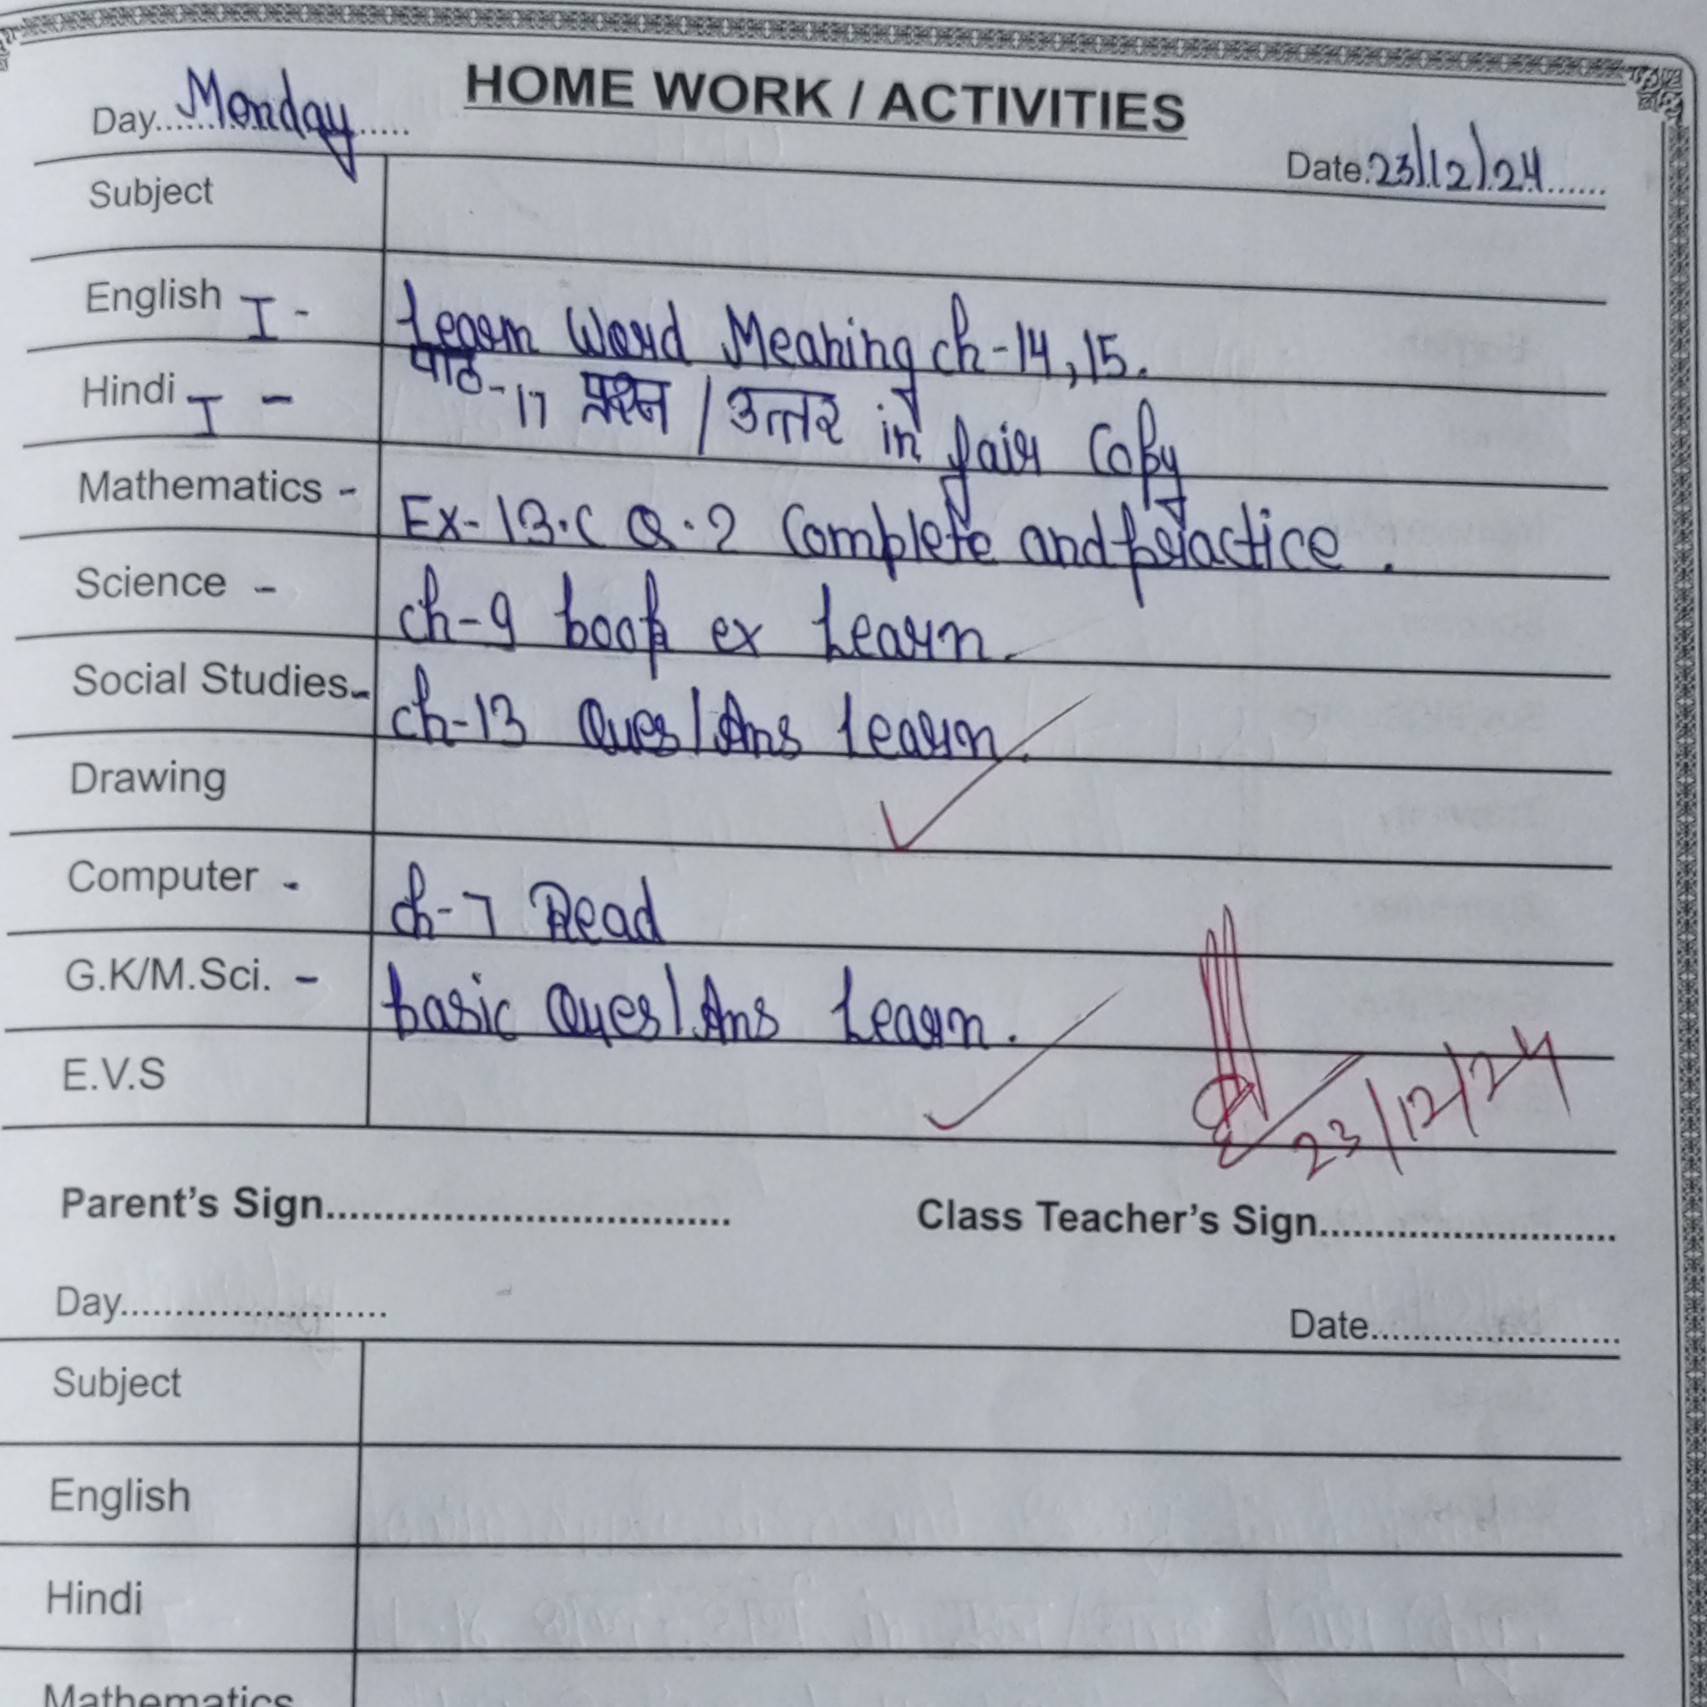 HOME WORK / ACTIVITIES
Day......Monday......
Date.23/12/24......
Subject
English I - Learn Word Meaning ch-14,15.
Hindi I - पाठ-17 प्रश्न / उत्तर in fair Copy
Mathematics - Ex-13.C Q.2 Complete and practice.
Science - ch-9 book ex Learn.
Social Studies- ch-13 Ques/Ans Learn.
Drawing
Computer - ch-7 Read
G.K/M.Sci. - basic Ques/Ans Learn.
E.V.S
23/12/24
Parent's Sign.................................... Class Teacher's Sign..........................
Day........................ Date........................
Subject
English
Hindi
Mathematics